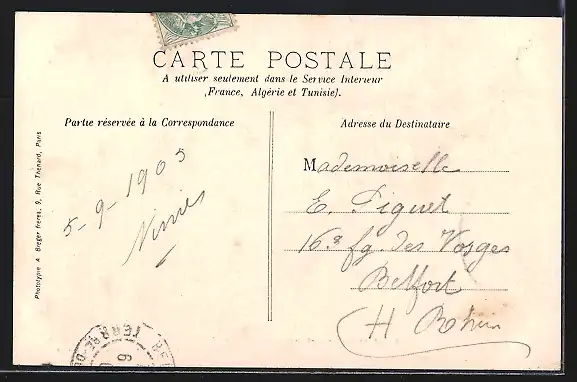 CARTE POSTALE
A utiliser seulement dans le Service Intérieur
(France, Algérie et Tunisie).
Partie réservée à la Correspondance
Adresse du Destinataire
5-9-1905
Mademoiselle
E. Piguet
16 fg. des Vosges
Belfort
H Rhin
Phototypie A. Breger frères, 9, Rue Thénard, Paris